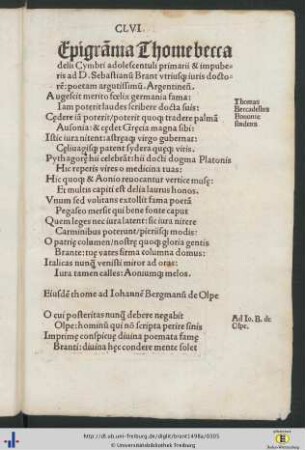 CLVI.
Epigrāmia Thome becca
delis Cymbri adolescentuli primarii & impube-
ris ad D. Sebastianū Brant vtriusq; iuris docto-
rē: poetam argutissimū. Argentineñ.
Augescit merito fœlix germania fama:
Iam poterit laudes scribere docta suis:
Thomas
Beccadelleus
Bononie
studens
Cędere iā poterit/poterit quoq; tradere palmā
Ausonia: & cędet Gręcia magna sibi:
Istic iura nitent: astręaq; virgo gubernat:
Cęliuagisq; patent sydera quęq; viris.
Pythagorę hii celebrāt: hii docti dogma Platonis
Hic reperis vires o medicina tuas:
Hic quoq; & Aonio reuocantur vertice musę:
Et multis capiti est delia laurus honos.
Vnum sed volitans extollit fama poetā
Pegaseo mersit qui bene fonte caput
Quem leges nec iura latent: sic iura nitere
Carminibus poterunt/pictrisq; modis:
O patrię columen/nostrę quoq; gloria gentis
Brante: tuę vates firma columna domus:
Italicas nunq̄ venisti miror ad oras:
Iura tamen calles: Aoniumq; melos.
Eiusdē thome ad Iohannē Bergmanū de Olpe
O cui posteritas nunq̄ debere negabit
Olpe: hominū qui nō scripta perire sinis
Ad Io. B. de
Olpe.
Imprime conspicuę diuina poemata famę
Branti: diuina hęc condere mente solet
http://dl.ub.uni-freiburg.de/diglit/brant1498a/0305
© Universitätsbibliothek Freiburg